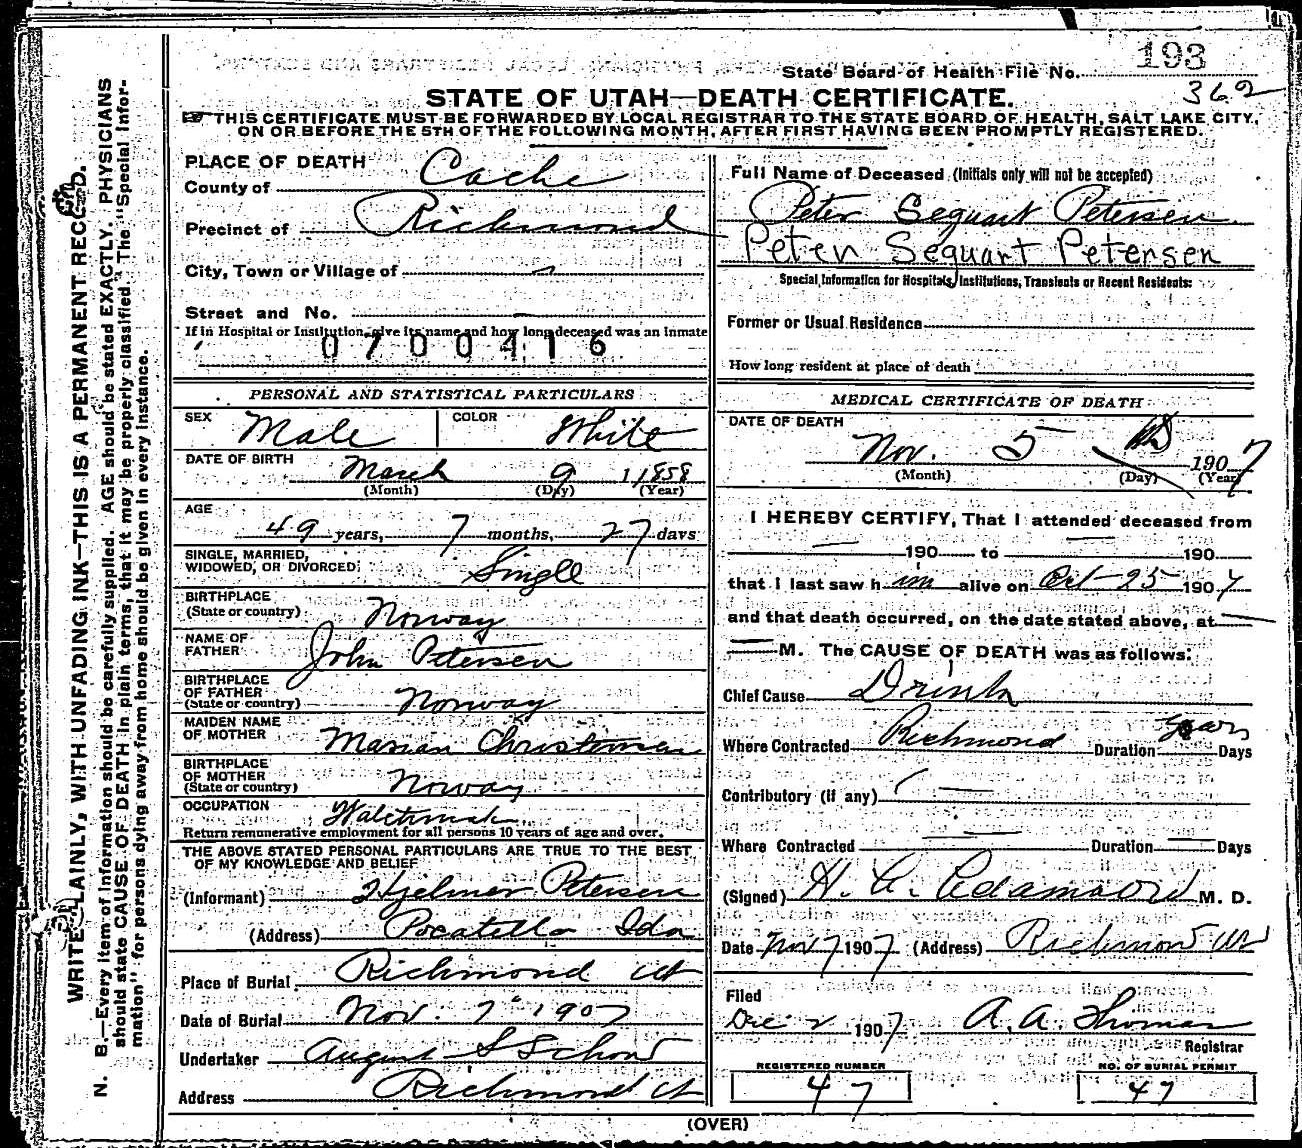 State Board of Health File No. 193
362
STATE OF UTAH—DEATH CERTIFICATE.
THIS CERTIFICATE MUST BE FORWARDED BY LOCAL REGISTRAR TO THE STATE BOARD OF HEALTH, SALT LAKE CITY,
ON OR BEFORE THE 5TH OF THE FOLLOWING MONTH, AFTER FIRST HAVING BEEN PROMPTLY REGISTERED.
PLACE OF DEATH
County of Cache
Precinct of Richmond
City, Town or Village of
Street and No.
If in Hospital or Institution, give its name and how long deceased was an inmate
0700416
PERSONAL AND STATISTICAL PARTICULARS
SEX Male COLOR White
DATE OF BIRTH March 9 1858
(Month) (Day) (Year)
AGE
49 years, 7 months, 27 days
SINGLE, MARRIED,
WIDOWED, OR DIVORCED Single
BIRTHPLACE
(State or country) Norway
NAME OF
FATHER John Petersen
BIRTHPLACE
OF FATHER
(State or country) Norway
MAIDEN NAME
OF MOTHER Marian Christensen
BIRTHPLACE
OF MOTHER
(State or country) Norway
OCCUPATION
Return remunerative employment for all persons 10 years of age and over.
THE ABOVE STATED PERSONAL PARTICULARS ARE TRUE TO THE BEST
OF MY KNOWLEDGE AND BELIEF
(Informant) Hjelmer Petersen
(Address) Pocatello Ida
Place of Burial Richmond Ut
Date of Burial Nov. 7 1907
Undertaker August S Schow
Address Richmond Ut
Full Name of Deceased (Initials only will not be accepted)
Peter Sequart Petersen
Peten Sequart Petersen
Special Information for Hospitals, Institutions, Transients or Recent Residents:
Former or Usual Residence
How long resident at place of death
MEDICAL CERTIFICATE OF DEATH
DATE OF DEATH
Nov. 5 1907
(Month) (Day) (Year)
I HEREBY CERTIFY, That I attended deceased from
190 to 190
that I last saw him alive on Oct-25 1907
and that death occurred, on the date stated above, at
M. The CAUSE OF DEATH was as follows:
Chief Cause Drink
Where Contracted Richmond Duration Years Days
Contributory (if any)
Where Contracted Duration Days
(Signed) H. A. Adamson M. D.
Date Nov 7 1907 (Address) Richmond Ut
Filed
Dec 2 1907 A. A. Thomas
Registrar
REGISTERED NUMBER
47
NO. OF BURIAL PERMIT
47
(OVER)
WRITE PLAINLY, WITH UNFADING INK—THIS IS A PERMANENT RECORD.
N. B.—Every item of information should be carefully supplied. AGE should be stated EXACTLY. PHYSICIANS
should state CAUSE OF DEATH in plain terms, that it may be properly classified. The "Special Infor-
mation" for persons dying away from home should be given in every instance.